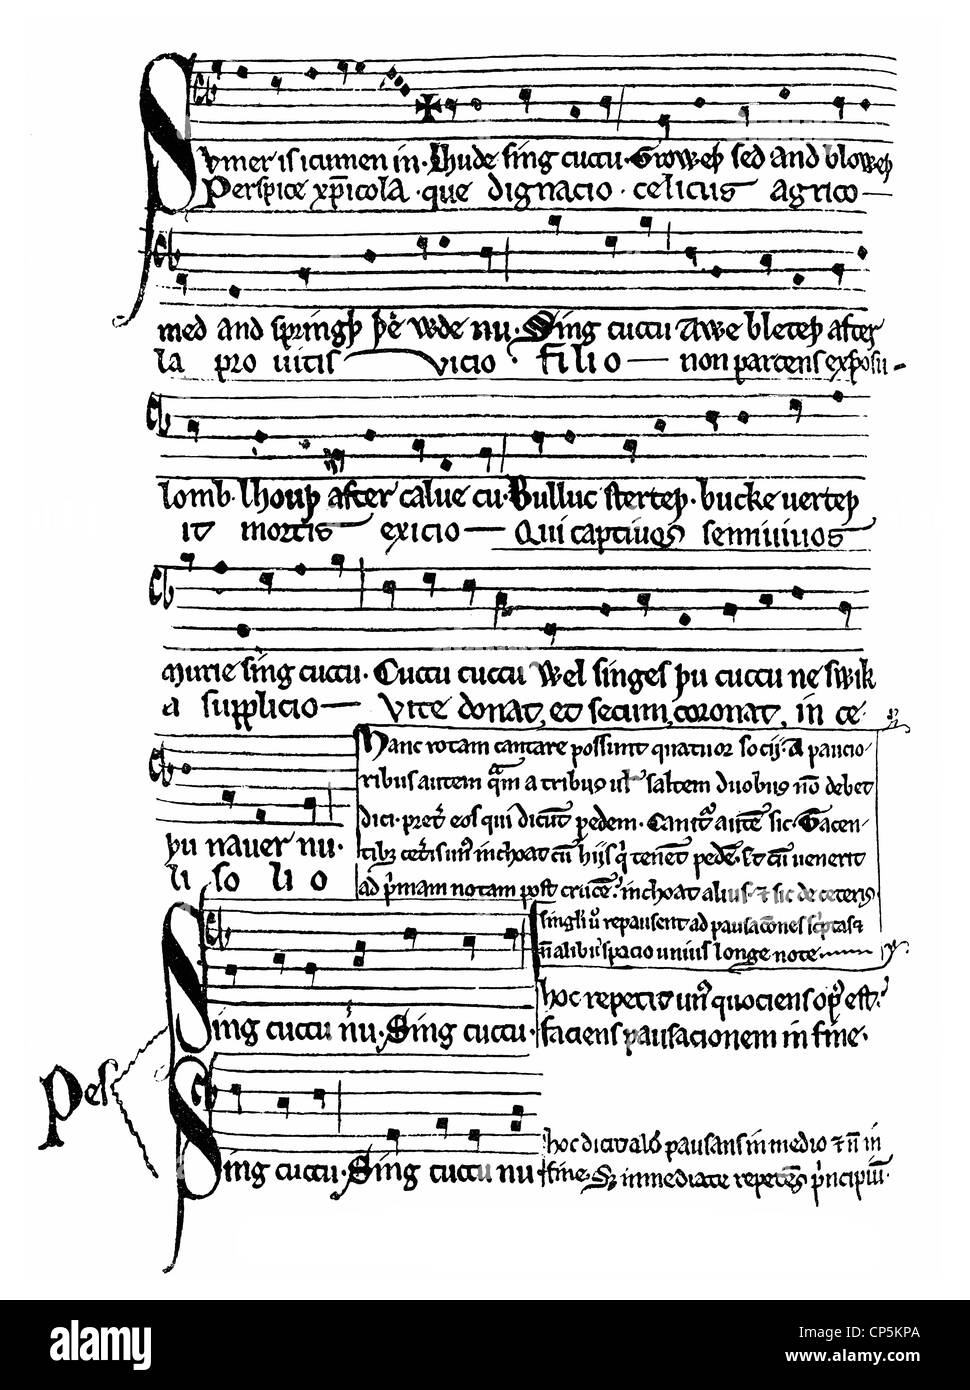 Sumer is icumen in · Lhude sing cuccu · Groweþ sed and bloweþ
Perspice xp̄icola · que dignacio · celicus agrico
med and springþ þe wde nu · Sing cuccu Awe bleteþ after
la pro uitis vicio · filio — non parcens exposu-
lomb · lhouþ after calue cu · Bulluc sterteþ · bucke uerteþ
it mortis exicio — Qui captiuos semiuiuos
murie sing cuccu · Cuccu cuccu Wel singes þu cuccu ne swik
a supplicio — vite donat, et secum, coronat, in ce
þu nauer nu ·
li so li o
Hanc rotam cantare possunt quatuor socij · A paucio-
ribus autem q̄m a tribus ul' saltem duobus nō debet
dici · pret' eos qui dicūt pedem · Canit' autē sic · Tacen-
tib; cet'is un' inchoat cū hijs q' tenēt pedē · Et cū uenerit
ad p'mam notam post crucē · inchoat alius · et sic de ceteris ·
singli u' repausent ad pausacōnes sc'ptas et
nō alibi spacio unius longe note
Sing cuccu nu · Sing cuccu ·
hoc repetit un' quociens op' est ·
faciens pausacionem in fine ·
Pes
Sing cuccu · Sing cuccu nu
hoc dicit ali' pausans in medio et nō in
fine · S; inmediate repetens p'ncipiū
alamy
Image ID: CP5KPA
www.alamy.com